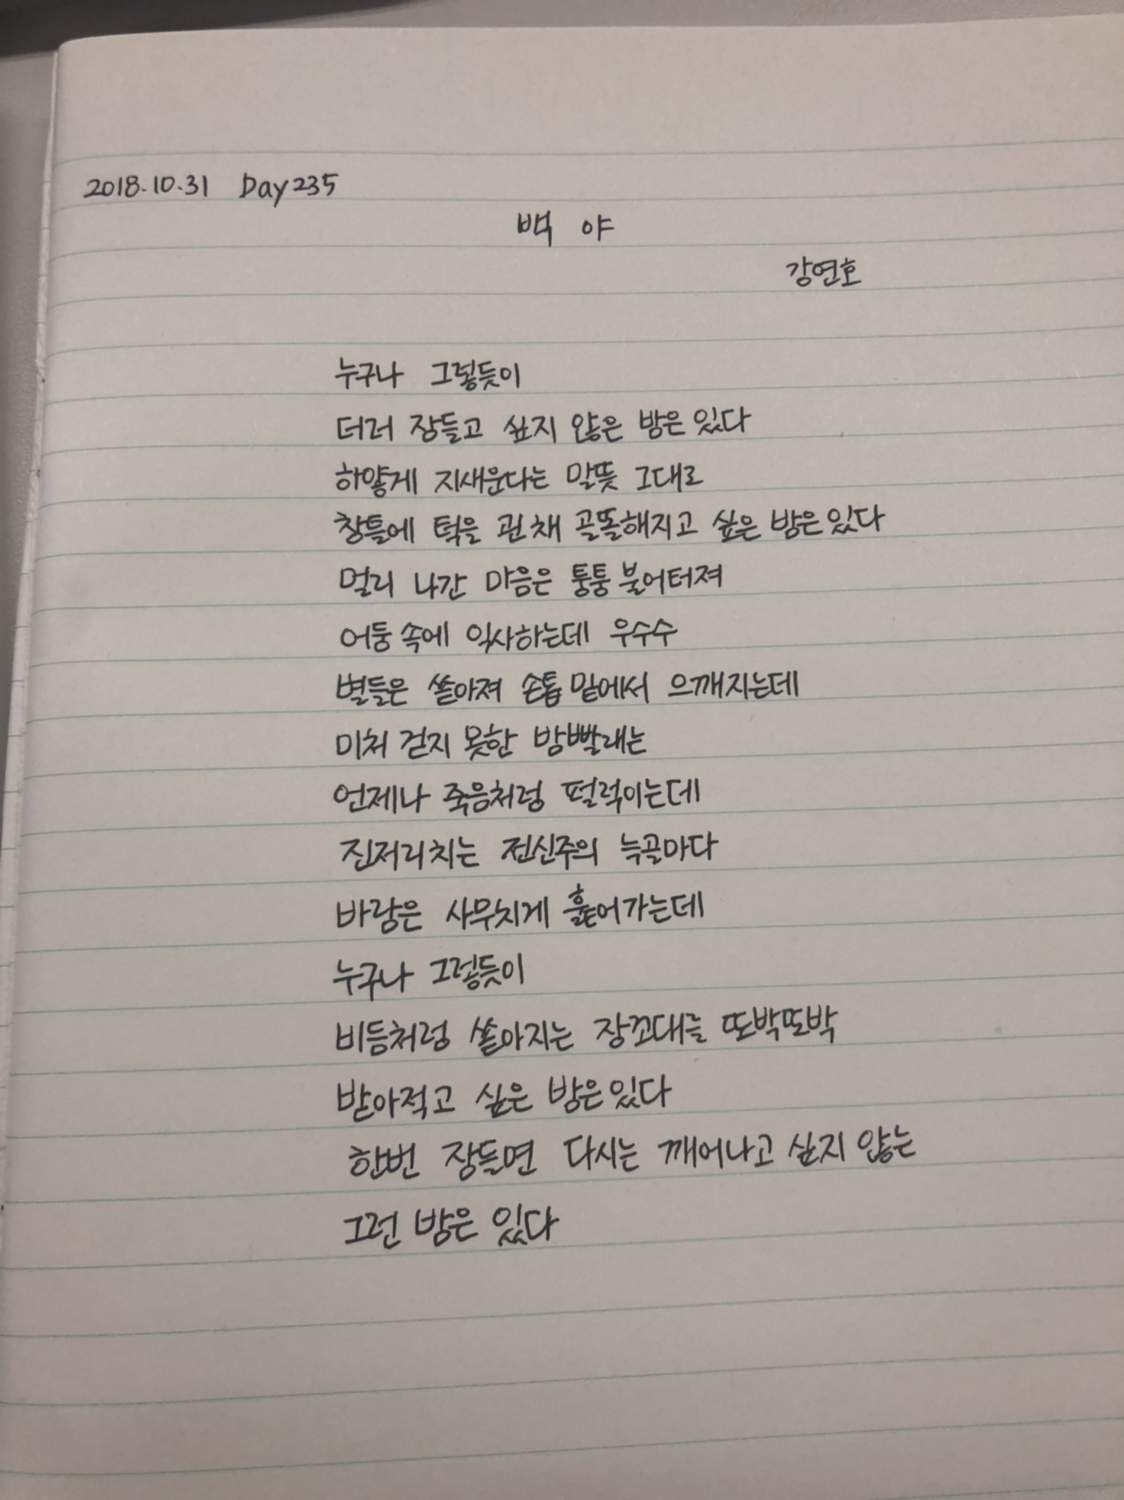 2018.10.31 Day235
백 야
강연호
누구나 그렇듯이
더러 잠들고 싶지 않은 밤은 있다
하얗게 지새운다는 말뜻 그대로
창틀에 턱을 괸 채 골똘해지고 싶은 밤은 있다
멀리 나간 마음은 퉁퉁 불어터져
어둠 속에 익사하는데 우수수
별들은 쏟아져 손톱 밑에서 으깨지는데
미처 걷지 못한 밤빨래는
언제나 죽음처럼 펄럭이는데
진저리치는 전신주의 늑골마다
바람은 사무치게 훑어가는데
누구나 그렇듯이
비듬처럼 쏟아지는 잠꼬대를 또박또박
받아적고 싶은 밤은 있다
한번 잠들면 다시는 깨어나고 싶지 않는
그런 밤은 있다